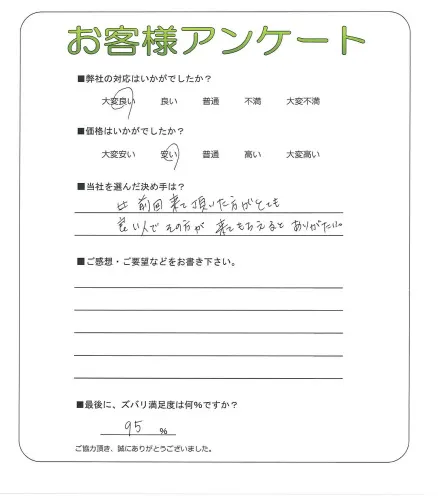 お客様アンケート
■弊社の対応はいかがでしたか？
大変良い 良い 普通 不満 大変不満
■価格はいかがでしたか？
大変安い 安い 普通 高い 大変高い
■当社を選んだ決め手は？
前回来て頂いた方がとても
良い人でその方が来てもらえるとありがたい。
■ご感想・ご要望などをお書き下さい。
■最後に、ズバリ満足度は何％ですか？
95 %
ご協力頂き、誠にありがとうございました。